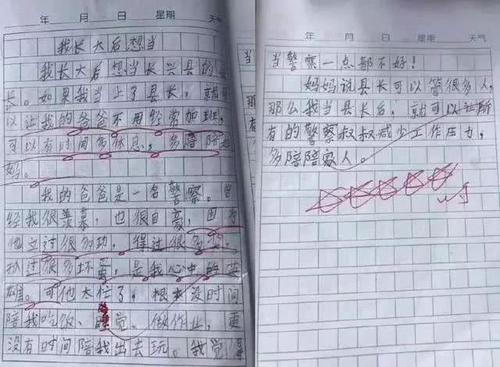 年 月 日 星期 天气
我长大后想当
我长大后想当长兴县的县
长。如果我当上了县长，就可
以让我的爸爸不用经常加班，
可以有时间多休息，多陪陪
妈。
我的爸爸是一名警察。曾
经我很羡慕，也很自豪，因为
他立过很多功，得过很多
抓过很多坏蛋，是我心中的英
雄。可他太忙了，根本没时间
陪我吃饭、睡觉、做作业，更
没有时间陪我出去玩。我觉得
年 月 日 星期 天气
当警察一点都不好！
妈妈说县长可以管很多人，
那么我当县长后，就可以让所
有的警察叔叔减少工作压力，
多陪陪家人。